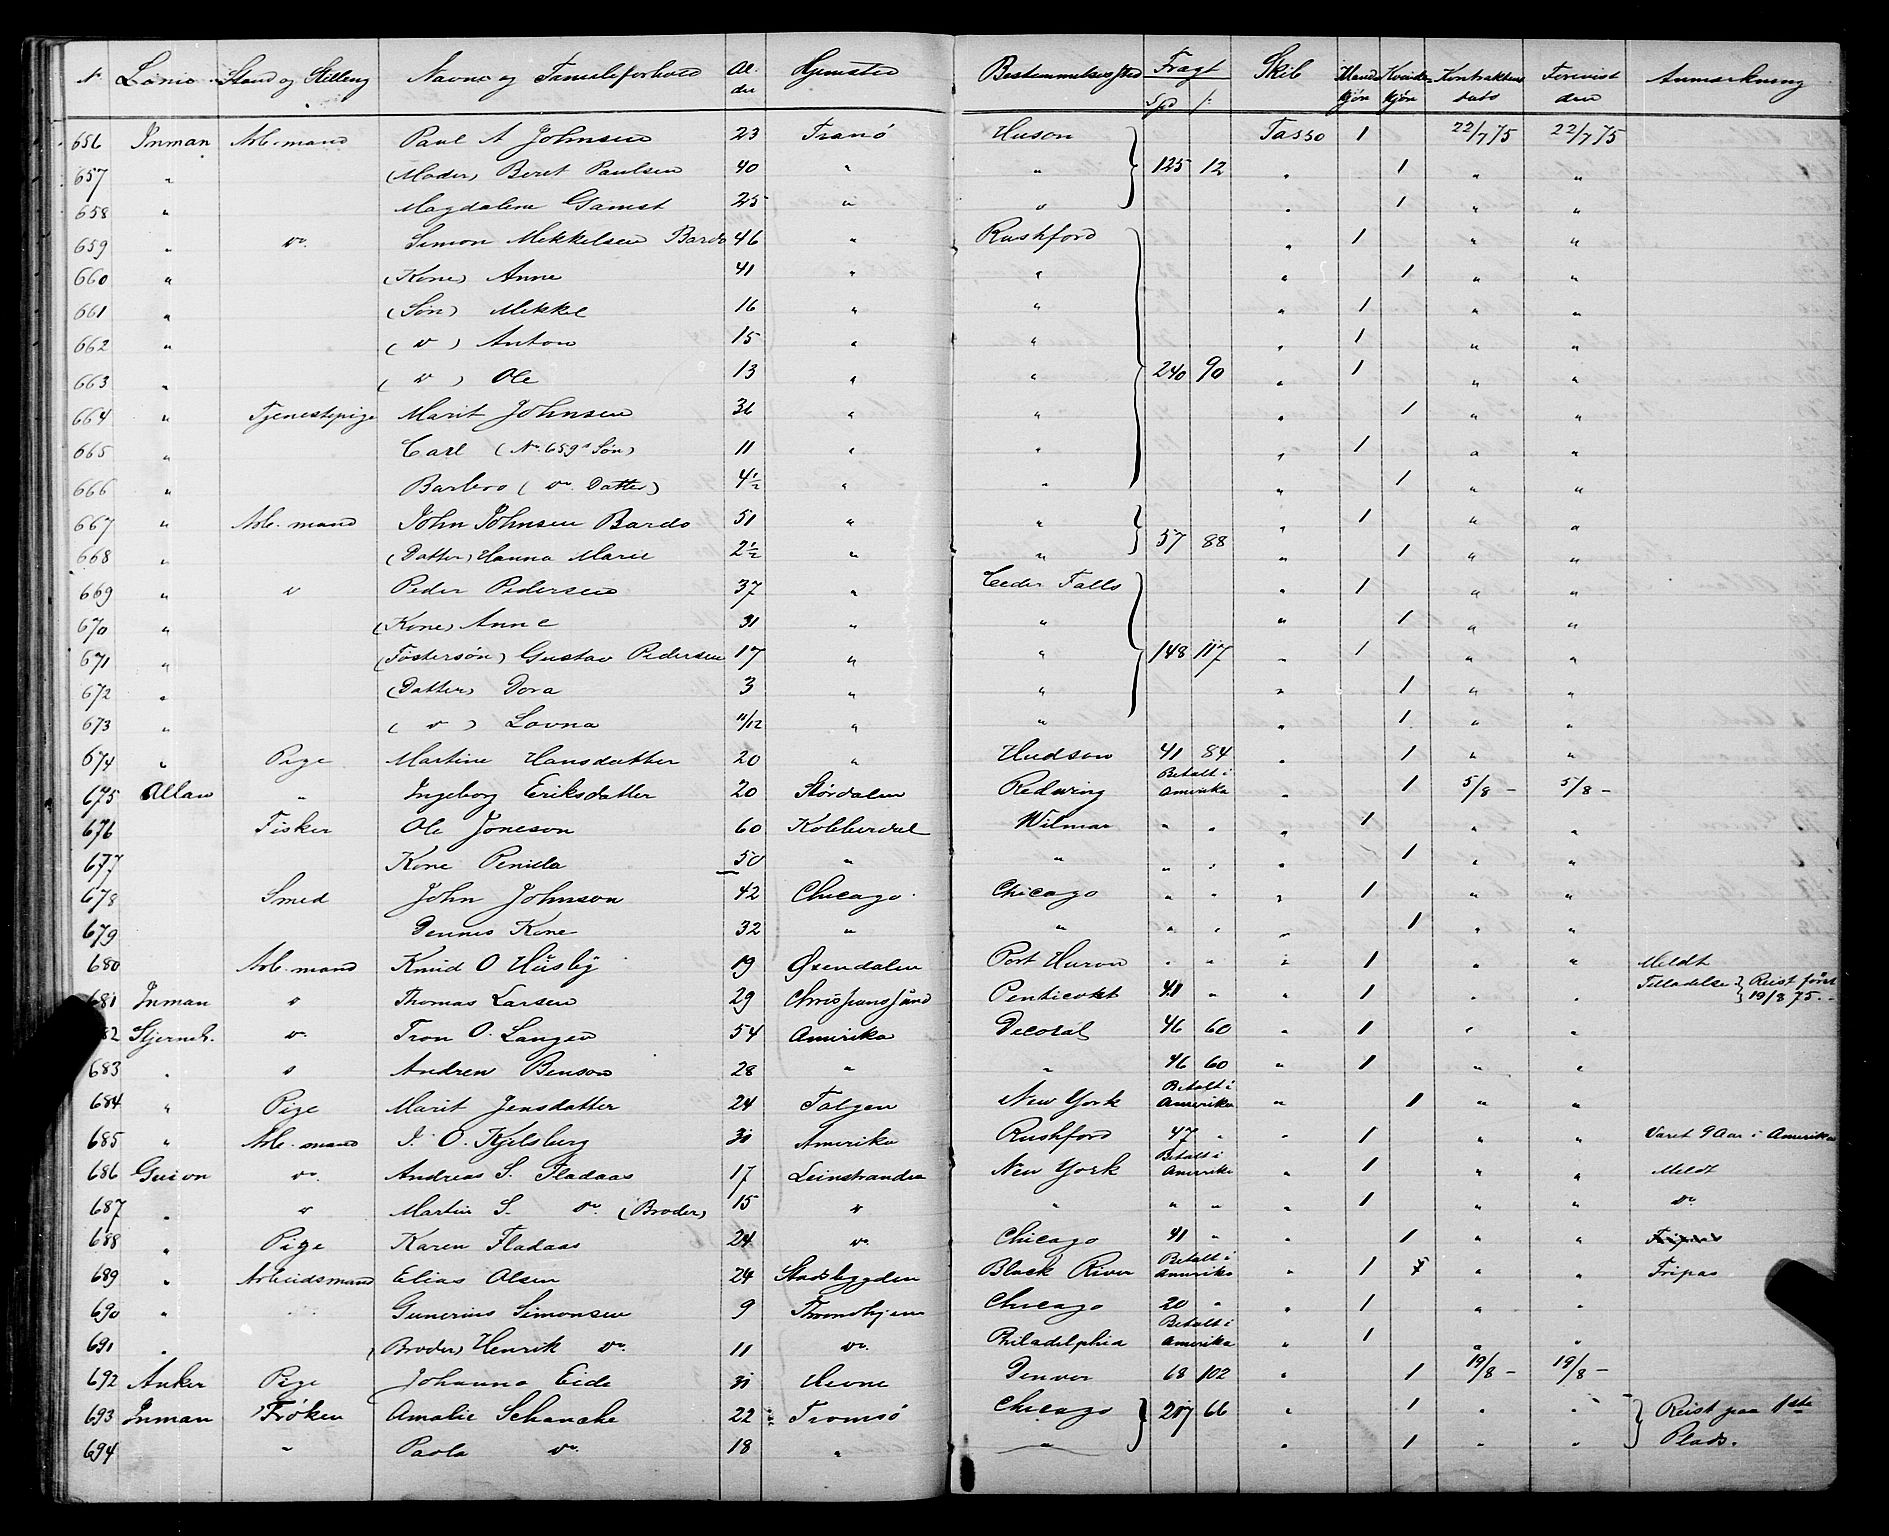 N. Linie Stand og Stilling Navne og Familieforhold Al-der Hjemsted Bestemmelsessted Fragt Spd /: Skib Mands kjøn Kvinde kjøn Kontraktens dato Forevist den Anmærkning
656 Inman Arb. mand Paul A Johnsen 23 Tranø Huson Tasso 1 22/7 75 22/7 75
657 " (Moder) Beret Paulsen 40 " " 125 12 " 1 " "
658 " Magdalene Gamst 25 " " " 1 " "
659 " do. Simon Mikkelsen Bardo 46 " Rushford " 1 " "
660 " (Kone) Anne 41 " " " 1 " "
661 " (Søn) Mikkel 16 " " " 1 " "
662 " (do) Anton 15 " " " 1 " "
663 " (do) Ole 13 " " 240 90 " 1 " "
664 " Tjenestepige Marit Johnsen 36 " " " 1 " "
665 " Carl (No. 659s Søn) 11 " " " 1 " "
666 " Barbro (do. Datter) 4 1/2 " " " 1 " "
667 " Arb. mand John Johnsen Bardo 51 " " " 1 " "
668 " (Datter) Hanna Marie 2 1/2 " " 57 88 " 1 " "
669 " do Peder Pedersen 37 " Ceder Falls " 1 " "
670 " (Kone) Anne 31 " " " 1 " "
671 " (Fostersøn) Gustav Pedersen 17 " " 148 117 " 1 " "
672 " (Datter) Dora 3 " " " 1 " "
673 " (do) Lovna 11/12 " " " 1 " "
674 " Pige Martine Hansdatter 20 " Hudson 41 84 " 1 " "
675 Allan " Ingeborg Eriksdatter 20 Størdalen Redwing Betalt i Amerika " 1 5/8 - 5/8 -
676 Fisker Ole Joneson 60 Kobberdal Wilmar " " " 1 " "
677 Kone Penilla 50 " " " " " 1 " "
678 Smed John Johnson 42 Chicago Chicago " " " 1 " "
679 Dennes Kone 32 " " " " " 1 " "
680 Arb. mand Knud O Husby 19 Øxendalen Port Huron " " " 1 " " Meldt
681 Inman do Thomas Larsen 29 Christianssund Penticokt 41 " " 1 " " Tilladelse } Reist først 19/8 75.-
82 Stjerneb. do. Tron O. Langen 54 Amerika Decorah 46 60 " 1 " "
683 " do Andrew Benson 28 " " 46 60 " 1 " "
684 " Pige Marit Jensdatter 24 Tolgen New York Betalt i Amerika " 1 " "
685 " Arb. mand I. O. Kjelsberg 31 Amerika Rushford 47 " " 1 " " Været 9 Aar i Amerika
686 Guion do. Andreas S. Fladaas 17 Leinstranden New York Betalt i Amerika " 1 " " Meldt
687 " do Martin S. do. (Broder) 15 do " " " " 1 " " do
688 " Pige Karen Fladaas 24 do. Chicago 41 " " 1 " " Fripas
689 " Arbeidsmand Elias Olsen 24 Stadsbygden Black River Betalt i Amerika " 1 " " Fripas
690 " Gunerius Simonsen 9 Throndhjem Chicago 20 " " 1 " "
691 " (Broder) Henrik do. 11 do. Philadelphia Betalt i Amerika " 1 " "
692 Anker Pige Johanna Eide 31 Hevne Denver 68 102 " 1 19/8 - 19/8 -
693 Inman Frøken Amalie Schanche 22 Tromsø Chicago 217 66 " 1 " " Reist paa 1ste
694 " Paola do. 18 " " " 1 " " Plads.